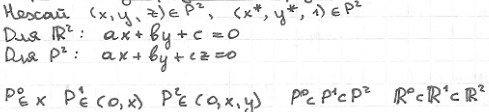 Нехай (x, y, z) ∈ P², (x*, y*, 1) ∈ P²
Для ℝ²: ax + by + c = 0
Для P²: ax + by + cz = 0
P⁰ ∈ x P¹ ∈ (0, x) P² ∈ (0, x, y) P⁰ ⊂ P¹ ⊂ P² ℝ⁰ ⊂ ℝ¹ ⊂ ℝ²